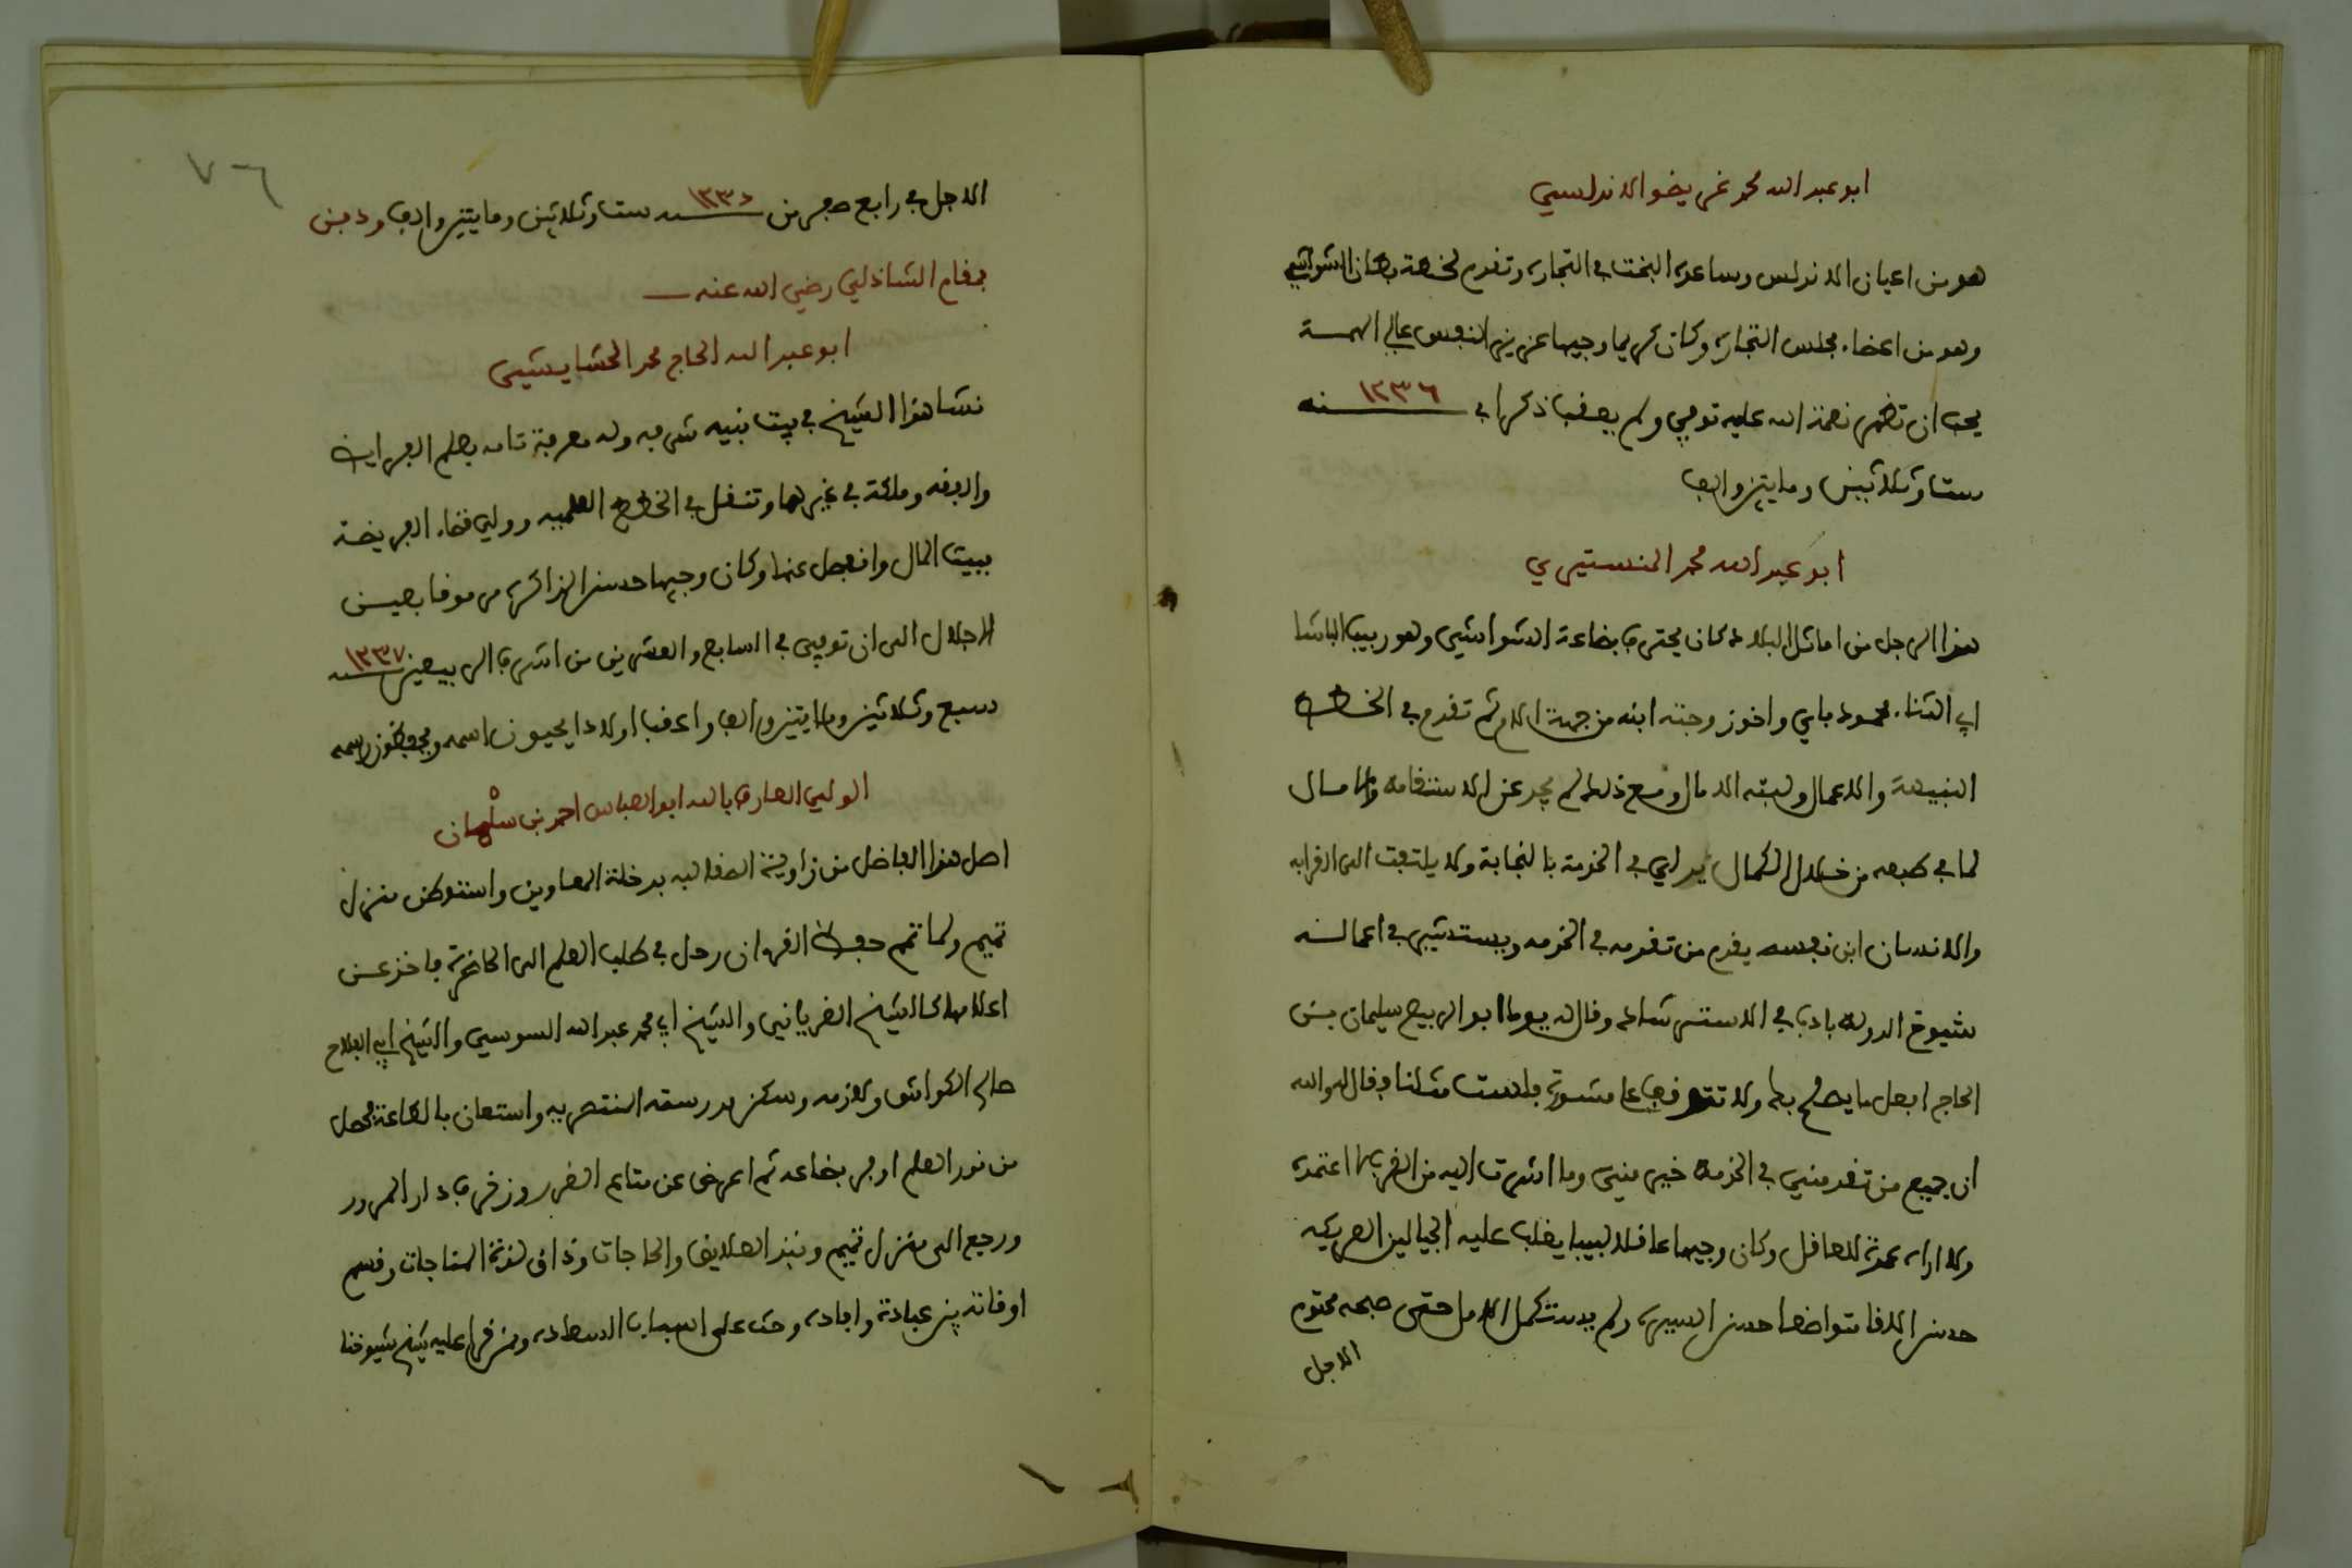 ابو عبد الله محمد غريضو الاندلسي
هو من اعيان الاندلس وساعده البخت في التجاره وتقدم لخطة بطان الشواشي
وهو من اعضاء مجلس التجاره وكان كريما وجيها عزيز النفس عالي الهمة
يحب ان تظهر نعمة الله عليه توفي ولم يعقب ذكرا في سنه ١٢٣٦
ست وثلاثين ومايتين والف
ابو عبد الله محمد المنستيري
هذا الرجل من اماثل البلاد كان يحترف بضاعة الشواشي وهو ربيب الباشا
ابي الثناء محمود باي واخو زوجته ابنه من جهة الام ثم تقدم في الخطط
النبيهة والاعمال ولبته الامال ومع ذلك لم يحد عن الاستقامه والامسال
لما في طبعه من خلال الكمال يدلي في الخدمة بالنجابة ولا يلتفت الى القرابه
والانسان ابن نفسه يقدم من تقدمه في الخدمه ويستشير في اعماله
شيوخ الدولة بادب في الاسترشاد وقال له يوما ابو الربيع سليمان بن
الحاج افعل ما يصلح بك ولا تتوقف على مشورة فلست مثلنا فقال له والله
ان جميع من تقدمني في الخدمة خير مني وما اشرت اليه من القربى لا اعتمده
ولا اراه عمدة للعاقل وكان وجيها عاقلا لبيبا يغلب عليه الجيا لين العريكه
حسن اللقا متواضعا حسن السيره ولم يستكمل الامل حتى صبحه محتوم
الاجل
٧٦
الاجل في رابع صفر من سنه ١٢٣٦ ست وثلاثين ومايتين والف ودفن
بمقام الشاذلي رضي الله عنه
ابو عبد الله الحاج محمد الحشايشي
نشا هذا الشيخ في بيت نبيه شرفه وله معرفة تامه بعلم الفرايض
والفقه وملكة في غيرهما وتنقل في الخطط العلميه وولي قضاء الفريضة
ببيت المال وانفصل عنها وكان وجيها حسن المذاكره مرموقا بعين
الاجلال الى ان توفي في السابع والعشرين من اشرف الربيعين سنه ١٢٣٧
سبع وثلاثين ومايتين والف واعقب اولادا يحيون اسمه ويحفظون رسمه
الولي العارف بالله ابو العباس احمد بن سلمان
اصل هذا الفاضل من زاوية الصقالبه بدخلة المعاوين واستوطن منزل
تميم ولما تمم حفظ القران رحل في طلب العلم الى الحاضرة فاخذ عن
اعلامها كالشيخ الغرياني والشيخ ابي محمد عبد الله السوسي والشيخ ابي الفلاح
صالح الكواش ولازمه وسكن مدرسته المنتصريه واستعان بالطاعة فحصل
من نور العلم اوفر بضاعه ثم اعرض عن متاع الغرور وزخرف دار المرور
ورجع الى منزل تميم ونبذ العلايق والحاجات وذاق لذة المناجات وقسم
اوقاته بين عبادة وافاده وحث على اسباب السعاده وممن قرا عليه شيخ شيوخنا